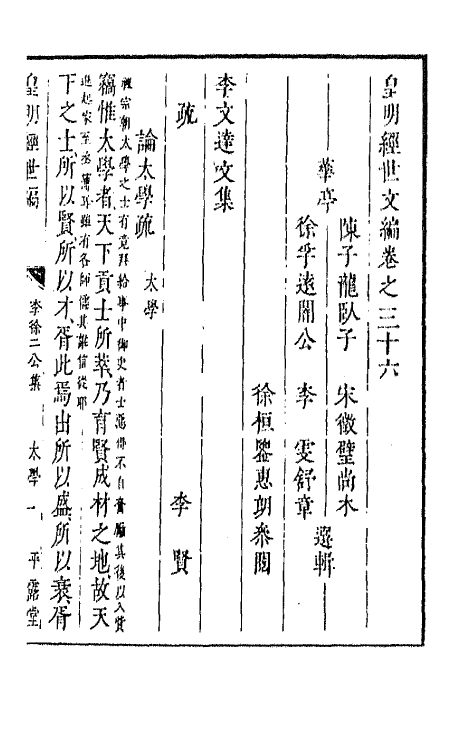 皇明經世文編卷之三十六
華亭
陳子龍臥子 宋徵璧尚木
徐孚遠闇公 李 雯舒章
選輯
徐桓鑒惠朗叅閱
李文達文集
疏 李 賢
論太學疏 太學
祖宗朝太學之士有竟拜給事中御史者士惡得不自奮勵其後以入貲
進起家至丞簿耳雖有名師儒其誰信從耶
竊惟太學者天下貢士所萃乃育賢成材之地故天
下之士所以賢所以才胥此焉出所以盛所以衰胥
皇明經世編 李徐二公集 太學 一 平露堂